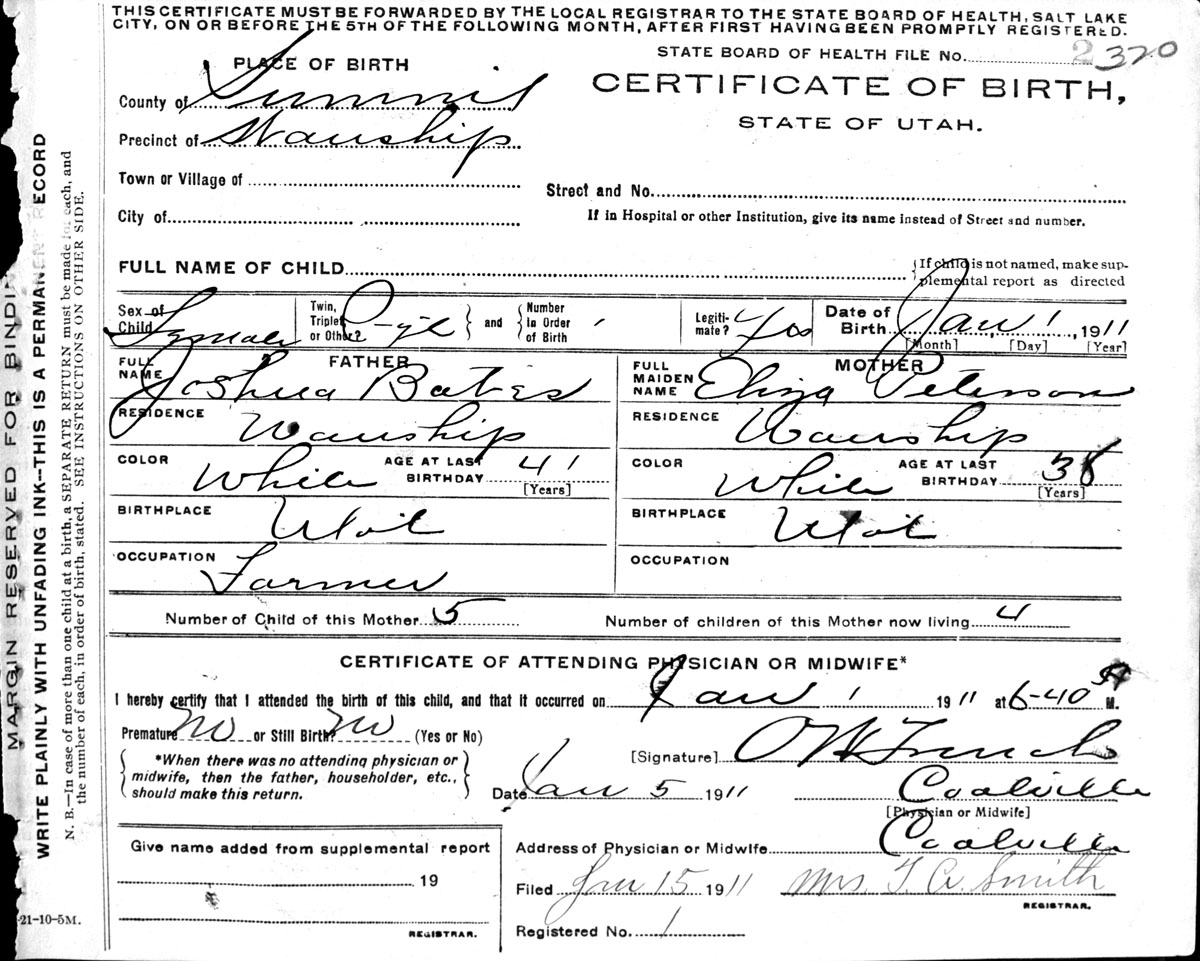 THIS CERTIFICATE MUST BE FORWARDED BY THE LOCAL REGISTRAR TO THE STATE BOARD OF HEALTH, SALT LAKE
CITY, ON OR BEFORE THE 5TH OF THE FOLLOWING MONTH, AFTER FIRST HAVING BEEN PROMPTLY REGISTERED.
STATE BOARD OF HEALTH FILE No. 2320
PLACE OF BIRTH
CERTIFICATE OF BIRTH,
STATE OF UTAH.
County of Summit
Precinct of Wanship
Town or Village of
Street and No.
City of
If in Hospital or other Institution, give its name instead of Street and number.
FULL NAME OF CHILD
{If child is not named, make sup-
plemental report as directed
Sex of Child Female
Twin, Triplet or Other?
and
Number in Order of Birth 1
Legiti-mate? Yes
Date of Birth Jan 1, 1911
[Month] [Day] [Year]
FATHER
FULL NAME Joshua Bates
RESIDENCE Wanship
COLOR White
AGE AT LAST BIRTHDAY 41
[Years]
BIRTHPLACE Utah
OCCUPATION Farmer
MOTHER
FULL MAIDEN NAME Eliza Peterson
RESIDENCE Wanship
COLOR White
AGE AT LAST BIRTHDAY 38
[Years]
BIRTHPLACE Utah
OCCUPATION
Number of Child of this Mother 5
Number of children of this Mother now living 4
CERTIFICATE OF ATTENDING PHYSICIAN OR MIDWIFE*
I hereby certify that I attended the birth of this child, and that it occurred on Jan 1 1911 at 6-40 M.
Premature No or Still Birth? No (Yes or No)
*When there was no attending physician or
midwife, then the father, householder, etc.,
should make this return.
[Signature] French
Date Jan 5 1911
Coalville
[Physician or Midwife]
Address of Physician or Midwife Coalville
Filed Jan 15 1911 Mrs. T. A. Smith
REGISTRAR.
Registered No. 1
Give name added from supplemental report
19
REGISTRAR.
MARGIN RESERVED FOR BINDIN
WRITE PLAINLY WITH UNFADING INK--THIS IS A PERMANENT RECORD
N. B.—In case of more than one child at a birth, a SEPARATE RETURN must be made for each, and
the number of each, in order of birth, stated. SEE INSTRUCTIONS ON OTHER SIDE.
21-10-5M.